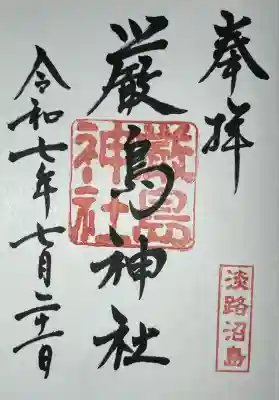 奉拝
厳島神社
厳島神社
淡路沼島
令和七年七月二十一日